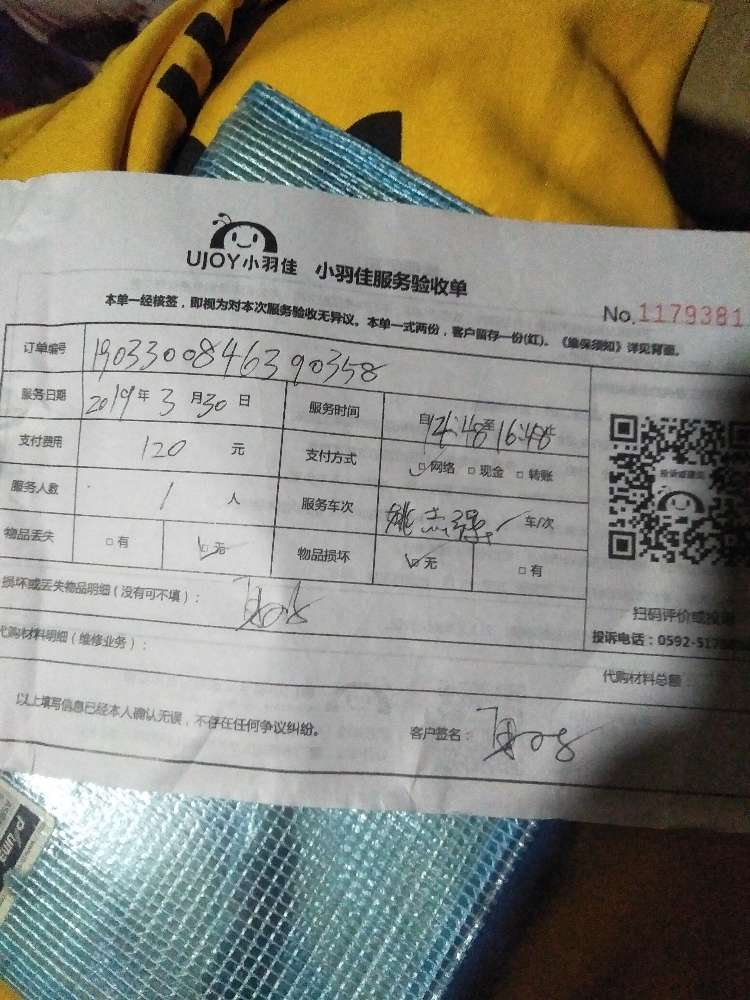 UJOY小羽佳 小羽佳服务验收单
No.1179381
本单一经核签，即视为对本次服务验收无异议。本单一式两份，客户留存一份(红)。《维保须知》详见背面。
订单编号 1903300846390358
服务日期 2019年3月30日 服务时间 自12:48至16:48止
支付费用 120 元 支付方式 网络 现金 转账
服务人数 1 人 服务车次 姚志强 车/次
物品丢失 有 无 物品损坏 无 有
投诉或建议
扫码评价或投诉
损坏或丢失物品明细（没有可不填）：
投诉电话：0592-517
代购材料明细（维修业务）：
代购材料总额：
以上填写信息已经本人确认无误，不存在任何争议纠纷。 客户签名：
puma